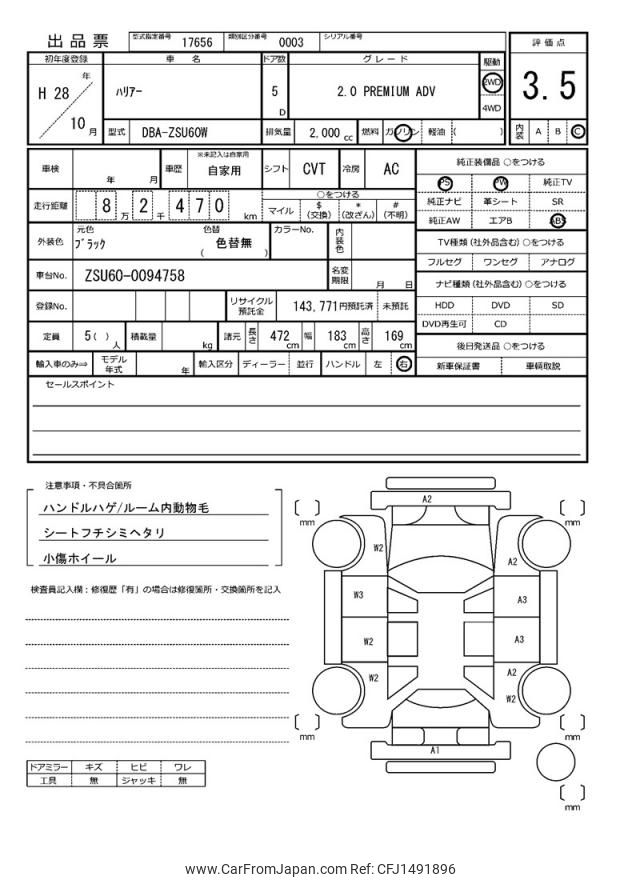 出品票 型式指定番号 17656 類別区分番号 0003 シリアル番号
初年度登録 車名 ドア数 グレード 駆動 評価点
H 28 年 10 月 ハリアー 5 D 2.0 PREMIUM ADV 2WD 4WD 3.5
型式 DBA-ZSU60W 排気量 2,000 cc 燃料 ガソリン 軽油 ( ) 内装 A B C
車検 年 月 車歴 ※未記入は自家用 自家用 シフト CVT 冷房 AC 純正装備品 ○をつける
PS PW 純正TV
走行距離 8 万 2 千 4 7 0 km ○をつける 純正ナビ 革シート SR
マイル $ (交換) * (改ざん) # (不明) 純正AW エアB ABS
外装色 元色 ブラック 色替 ( 色替無 ) カラーNo. 内装色 TV種類(社外品含む)○をつける
フルセグ ワンセグ アナログ
車台No. ZSU60-0094758 名変期限 月 日 ナビ種類(社外品含む)○をつける
登録No. リサイクル預託金 143,771円預託済 未預託 HDD DVD SD
DVD再生可 CD
定員 5 ( ) 人 積載量 kg 諸元 長さ 472 cm 幅 183 cm 高さ 169 cm 後日発送品 ○をつける
輸入車のみ⇒ モデル年式 年 輸入区分 ディーラー 並行 ハンドル 左 右 新車保証書 車輌取説
セールスポイント
注意事項・不具合箇所
ハンドルハゲ/ルーム内動物毛
シートフチシミヘタリ
小傷ホイール
検査員記入欄:修復歴「有」の場合は修復箇所・交換箇所を記入
A2
mm mm
W2 A2
W3 A3
W2 A3
W2 A2
W2
mm mm
A1
mm
ドアミラー キズ ヒビ ワレ
工具 無 ジャッキ 無
www.CarFromJapan.com Ref: CFJ1491896